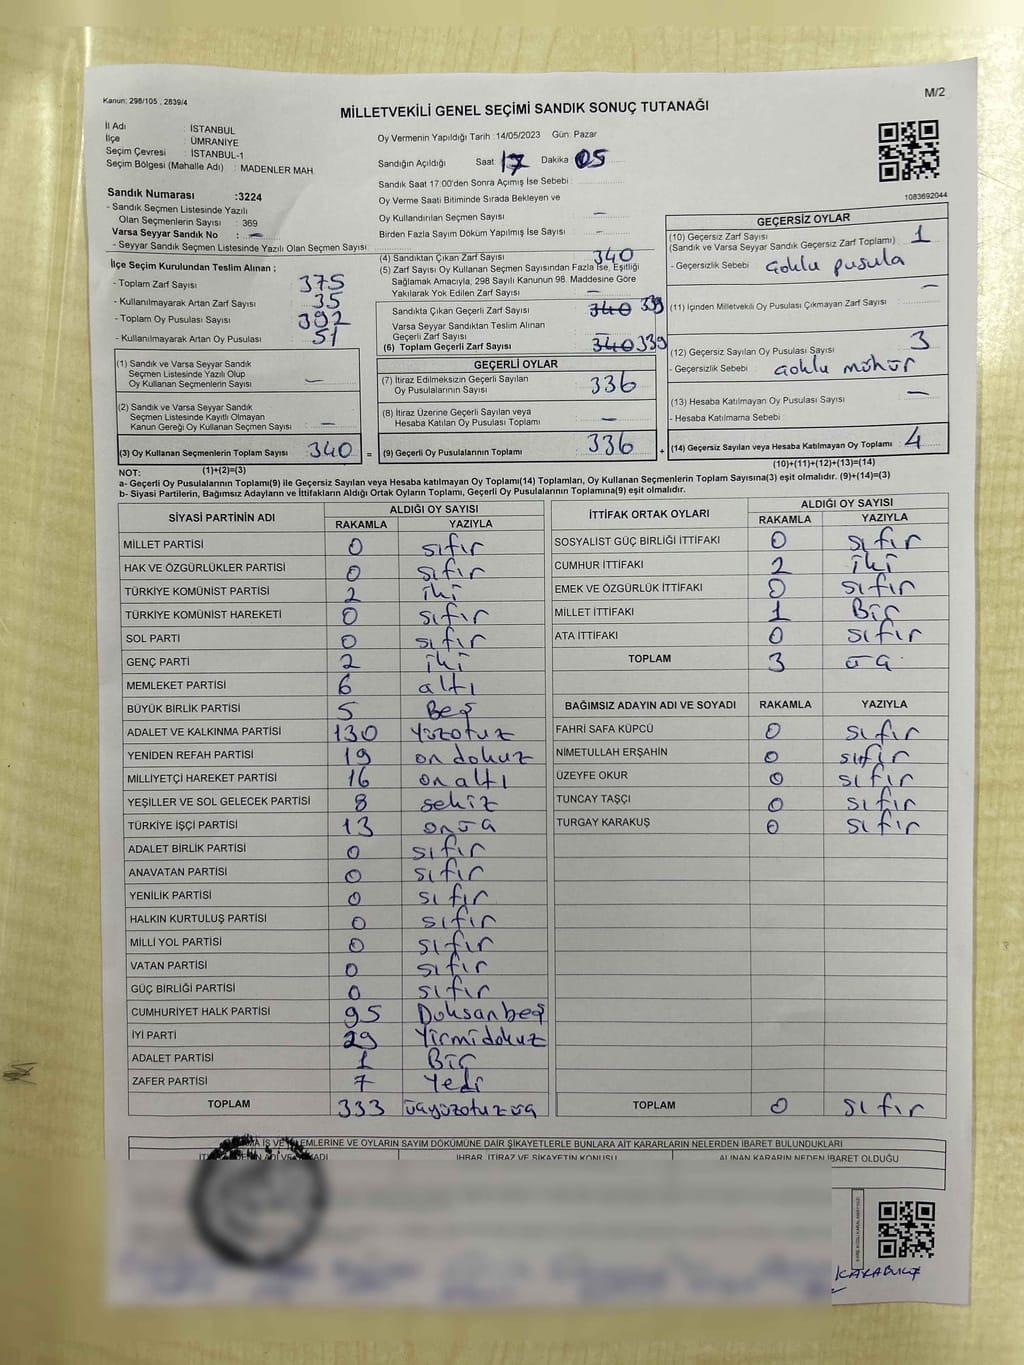 Kanun: 298/105 , 2839/4
M/2
MİLLETVEKİLİ GENEL SEÇİMİ SANDIK SONUÇ TUTANAĞI
İl Adı : İSTANBUL
İlçe : ÜMRANİYE
Seçim Çevresi : İSTANBUL-1
Seçim Bölgesi (Mahalle Adı) : MADENLER MAH.
Oy Vermenin Yapıldığı Tarih : 14/05/2023 Gün: Pazar
Sandığın Açıldığı Saat 17 Dakika 05
Sandık Saat 17:00'den Sonra Açımış İse Sebebi :
Oy Verme Saati Bitiminde Sırada Bekleyen ve
Oy Kullandırılan Seçmen Sayısı : —
Birden Fazla Sayım Döküm Yapılmış İse Sayısı : —
1083692044
Sandık Numarası :3224
- Sandık Seçmen Listesinde Yazılı
Olan Seçmenlerin Sayısı : 369
Varsa Seyyar Sandık No : —
- Seyyar Sandık Seçmen Listesinde Yazılı Olan Seçmen Sayısı :
İlçe Seçim Kurulundan Teslim Alınan ;
- Toplam Zarf Sayısı : 375
- Kullanılmayarak Artan Zarf Sayısı : 35
- Toplam Oy Pusulası Sayısı : 392
- Kullanılmayarak Artan Oy Pusulası : 51
(1) Sandık ve Varsa Seyyar Sandık
Seçmen Listesinde Yazılı Olup
Oy Kullanan Seçmenlerin Sayısı : —
(2) Sandık ve Varsa Seyyar Sandık
Seçmen Listesinde Kayıtlı Olmayan
Kanun Gereği Oy Kullanan Seçmen Sayısı : —
(3) Oy Kullanan Seçmenlerin Toplam Sayısı : 340 =
(1)+(2)=(3)
(4) Sandıktan Çıkan Zarf Sayısı : 340
(5) Zarf Sayısı Oy Kullanan Seçmen Sayısından Fazla İse, Eşitliği
Sağlamak Amacıyla, 298 Sayılı Kanunun 98. Maddesine Göre
Yakılarak Yok Edilen Zarf Sayısı : —
Sandıkta Çıkan Geçerli Zarf Sayısı : 340 339
Varsa Seyyar Sandıktan Teslim Alınan
Geçerli Zarf Sayısı :
(6) Toplam Geçerli Zarf Sayısı : 340 339
GEÇERLİ OYLAR
(7) İtiraz Edilmeksizin Geçerli Sayılan
Oy Pusulalarının Sayısı : 336
(8) İtiraz Üzerine Geçerli Sayılan veya
Hesaba Katılan Oy Pusulası Toplamı : —
(9) Geçerli Oy Pusulalarının Toplamı : 336 +
GEÇERSİZ OYLAR
(10) Geçersiz Zarf Sayısı
(Sandık ve Varsa Seyyar Sandık Geçersiz Zarf Toplamı) : 1
- Geçersizlik Sebebi : çoklu pusula
(11) İçinden Milletvekili Oy Pusulası Çıkmayan Zarf Sayısı : —
(12) Geçersiz Sayılan Oy Pusulası Sayısı : 3
- Geçersizlik Sebebi : çoklu mühür
(13) Hesaba Katılmayan Oy Pusulası Sayısı : —
- Hesaba Katılmama Sebebi :
(14) Geçersiz Sayılan veya Hesaba Katılmayan Oy Toplamı : 4
(10)+(11)+(12)+(13)=(14)
NOT:
a- Geçerli Oy Pusulalarının Toplamı(9) ile Geçersiz Sayılan veya Hesaba katılmayan Oy Toplamı(14) Toplamları, Oy Kullanan Seçmenlerin Toplam Sayısına(3) eşit olmalıdır. (9)+(14)=(3)
b- Siyasi Partilerin, Bağımsız Adayların ve İttifakların Aldığı Ortak Oyların Toplamı, Geçerli Oy Pusulalarının Toplamına(9) eşit olmalıdır.
SİYASİ PARTİNİN ADI ALDIĞI OY SAYISI
RAKAMLA YAZIYLA
MİLLET PARTİSİ 0 sıfır
HAK VE ÖZGÜRLÜKLER PARTİSİ 0 sıfır
TÜRKİYE KOMÜNİST PARTİSİ 2 iki
TÜRKİYE KOMÜNİST HAREKETİ 0 sıfır
SOL PARTİ 0 sıfır
GENÇ PARTİ 2 iki
MEMLEKET PARTİSİ 6 altı
BÜYÜK BİRLİK PARTİSİ 5 Beş
ADALET VE KALKINMA PARTİSİ 130 Yüzotuz
YENİDEN REFAH PARTİSİ 19 on dokuz
MİLLİYETÇİ HAREKET PARTİSİ 16 on altı
YEŞİLLER VE SOL GELECEK PARTİSİ 8 sekiz
TÜRKİYE İŞÇİ PARTİSİ 13 onüç
ADALET BİRLİK PARTİSİ 0 sıfır
ANAVATAN PARTİSİ 0 sıfır
YENİLİK PARTİSİ 0 sıfır
HALKIN KURTULUŞ PARTİSİ 0 sıfır
MİLLİ YOL PARTİSİ 0 sıfır
VATAN PARTİSİ 0 sıfır
GÜÇ BİRLİĞİ PARTİSİ 0 sıfır
CUMHURİYET HALK PARTİSİ 95 Doksanbeş
İYİ PARTİ 29 Yirmidokuz
ADALET PARTİSİ 1 Bir
ZAFER PARTİSİ 7 Yedi
TOPLAM 333 üçyüzotuzüç
İTTİFAK ORTAK OYLARI ALDIĞI OY SAYISI
RAKAMLA YAZIYLA
SOSYALİST GÜÇ BİRLİĞİ İTTİFAKI 0 sıfır
CUMHUR İTTİFAKI 2 iki
EMEK VE ÖZGÜRLÜK İTTİFAKI 0 sıfır
MİLLET İTTİFAKI 1 Bir
ATA İTTİFAKI 0 sıfır
TOPLAM 3 üç
BAĞIMSIZ ADAYIN ADI VE SOYADI RAKAMLA YAZIYLA
FAHRİ SAFA KÜPCÜ 0 sıfır
NİMETULLAH ERŞAHİN 0 sıfır
ÜZEYFE OKUR 0 sıfır
TUNCAY TAŞÇI 0 sıfır
TURGAY KARAKUŞ 0 sıfır
TOPLAM 0 sıfır
İŞ VE İŞLEMLERİNE VE OYLARIN SAYIM DÖKÜMÜNE DAİR ŞİKAYETLERLE BUNLARA AİT KARARLARIN NELERDEN İBARET BULUNDUKLARI
İHBAR, İTİRAZ VE ŞİKAYETİN KONUSU ALINAN KARARIN NEDEN İBARET OLDUĞU